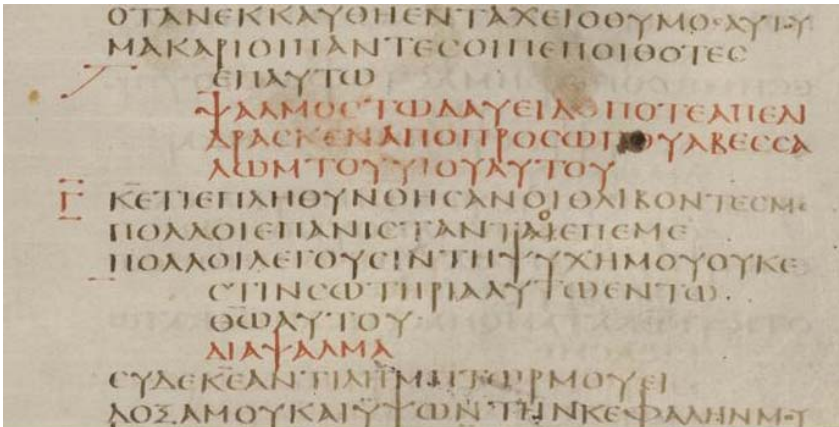 ΟΤΑΝΕΚΚΑΥΘΗΕΝΤΑΧΕΙΟΘΥΜΟϹΑΥΤΟΥ
ΜΑΚΑΡΙΟΙΠΑΝΤΕϹΟΙΠΕΠΟΙΘΟΤΕϹ
ΕΠΑΥΤΩ
ΨΑΛΜΟϹΤΩΔΑΥΕΙΔΟΠΟΤΕΑΠΕΔΙ
ΔΡΑϹΚΕΝΑΠΟΠΡΟϹΩΠΟΥΑΒΕϹϹΑ
ΛΩΜΤΟΥΥΙΟΥΑΥΤΟΥ
Γ ΚΕΤΙΕΠΛΗΘΥΝΘΗϹΑΝΟΙΘΛΙΒΟΝΤΕϹΜΕ
ΠΟΛΛΟΙΕΠΑΝΙϹΤΑΝΤΑΙΕΠΕΜΕ
ΠΟΛΛΟΙΛΕΓΟΥϹΙΝΤΗΨΥΧΗΜΟΥΟΥΚΕ
ϹΤΙΝϹΩΤΗΡΙΑΑΥΤΩΕΝΤΩ
ΘΩΑΥΤΟΥ
ΔΙΑΨΑΛΜΑ
ϹΥΔΕΚΕΑΝΤΙΛΗΜΠΤΩΡΜΟΥΕΙ
ΔΟΞΑΜΟΥΚΑΙΥΨΩΝΤΗΝΚΕΦΑΛΗΝΜΟΥ